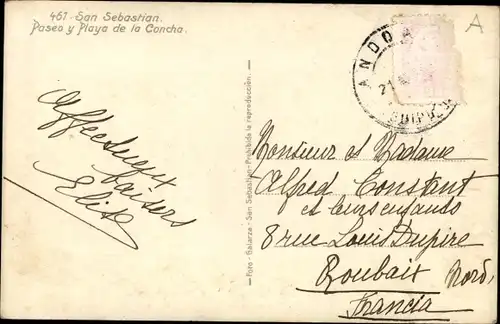 461 - San Sebastian.
Paseo y Playa de la Concha.
ANDOA
21
GUIPUZ
A
Affectueux
baisers
Elise
Foto - Galarza - San Sebastian - Prohibida la reproducción.
Monsieur et Madame
Alfred Constant
et
8 rue Louis Dupire
Roubaix Nord,
Francia